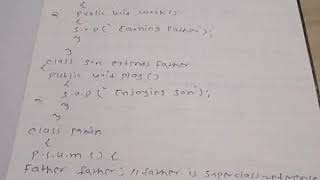 public void work()
{
S.o.p(" Earning Father");
}
}
class son extends Father
{
public void play()
{
S.o.p(" Enjoying son");
}
}
class Main
{
p.s.v.m () {
Father father; // father is superclass-reference